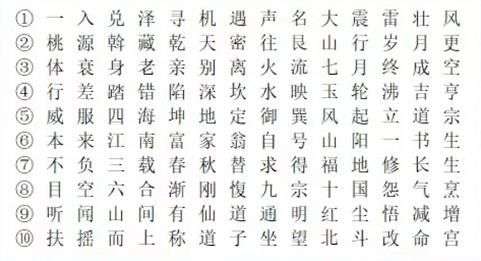 ① 一入兑泽寻机遇声名大震雷壮风
② 桃源斡藏乾天密往艮山行岁月更
③ 体衰身老亲别离火流七月终成空
④ 行差踏错陷深坎水映玉轮沸吉亨
⑤ 威服四海坤地定御巽风起立道宗
⑥ 本来江南富家翁自号山阳一书生
⑦ 不负三载春秋替求得福地修长生
⑧ 目空六合渐刚愎九宗十国怨气烹
⑨ 听闻山间有仙道通明红尘悟减增
⑩ 扶摇而上称道子坐望北斗改命宫